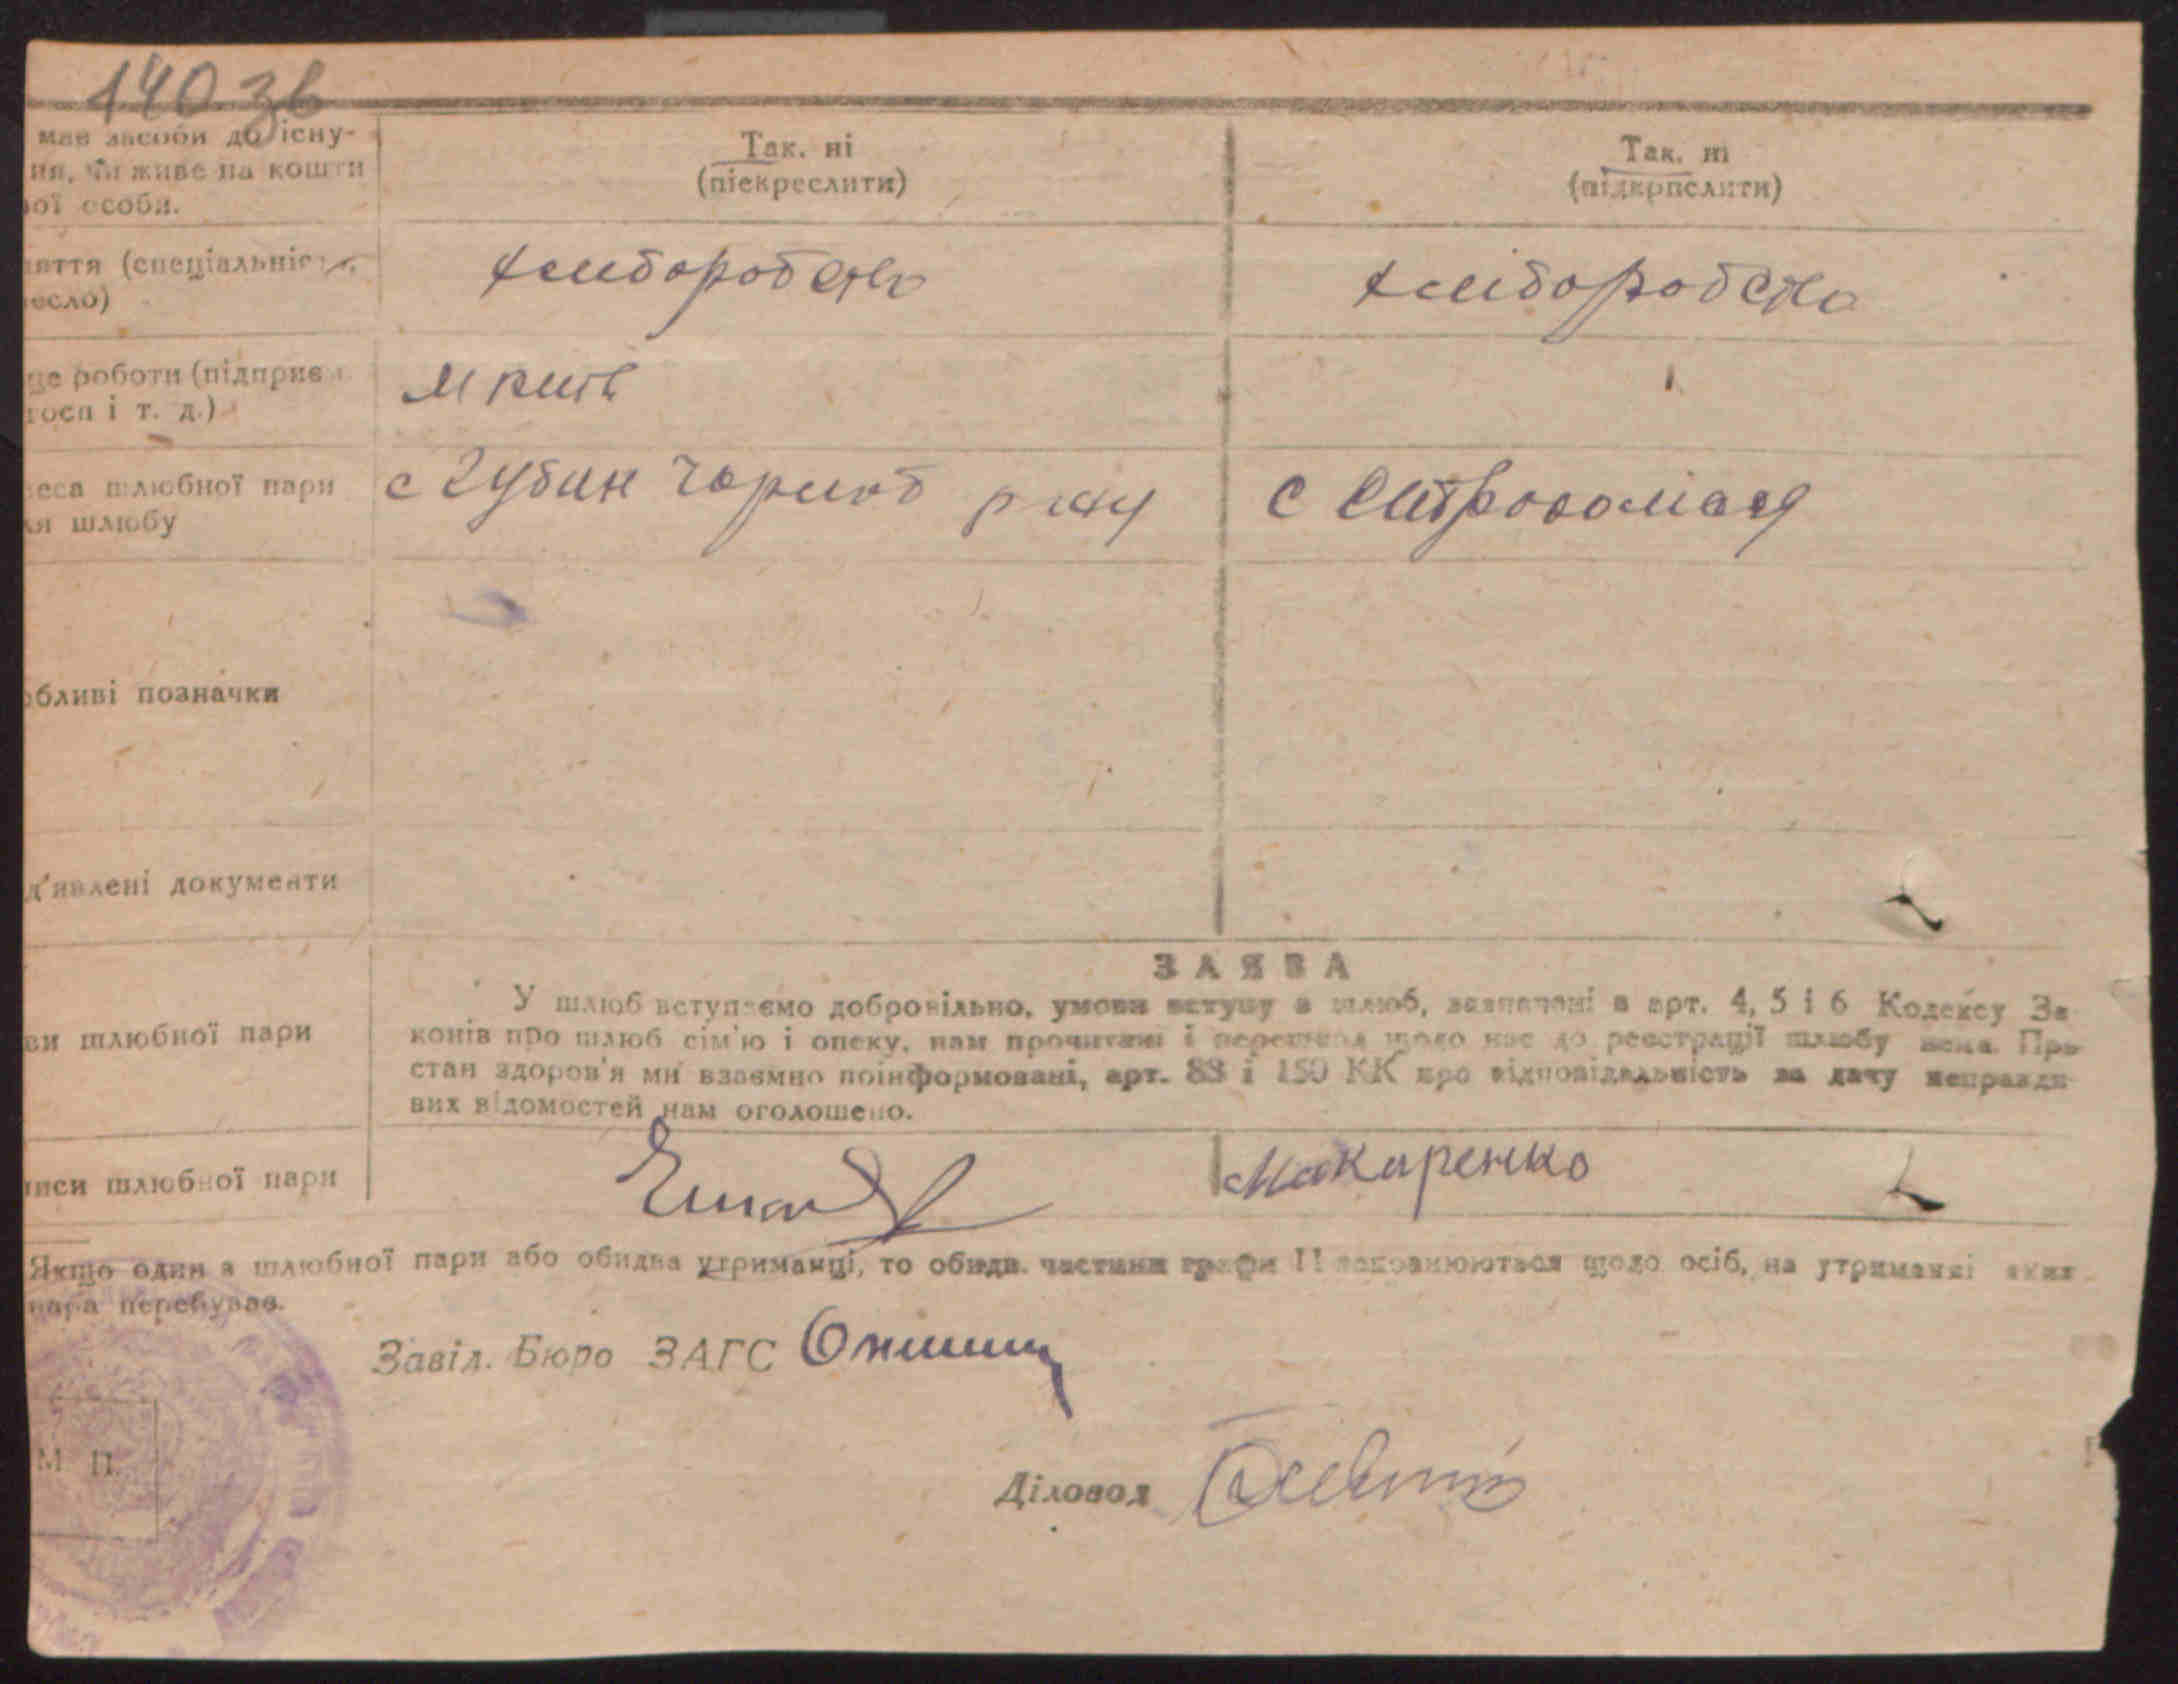 140 зв
має засоби до існу-
ня, чи живе на кошти
ої особи.
Так. ні
(піекреслити)
Так. ні
(підкрпслити)
яття (спеціальніс
есло)
хліборобство
хліборобство
це роботи (підприєм
госп і т. д.)
м Київ
еса шлюбної пари
ля шлюбу
с Губин Чорноб р ну
с
обливі позначки
д'явлені документи
ЗАЯВА
ви шлюбної пари
У шлюб вступаємо добровільно, умови вступу в шлюб, зазначені в арт. 4, 5 і 6 Кодексу За
конів про шлюб сім'ю і опеку, нам прочитані і перешкод щодо нас до реєстрації шлюбу нема. Про
стан здоров'я ми взаємно поінформовані, арт. 88 і 150 КК про відповідальність за дачу неправди
вих відомостей нам оголошено.
писи шлюбної пари
Макаренко
Якщо один з шлюбної пари або обидва утриманці, то обидві частини графи 11 заповнюються щодо осіб, на утриманні яких
пара перебуває.
Завід. Бюро ЗАГС
М. П.
Діловод